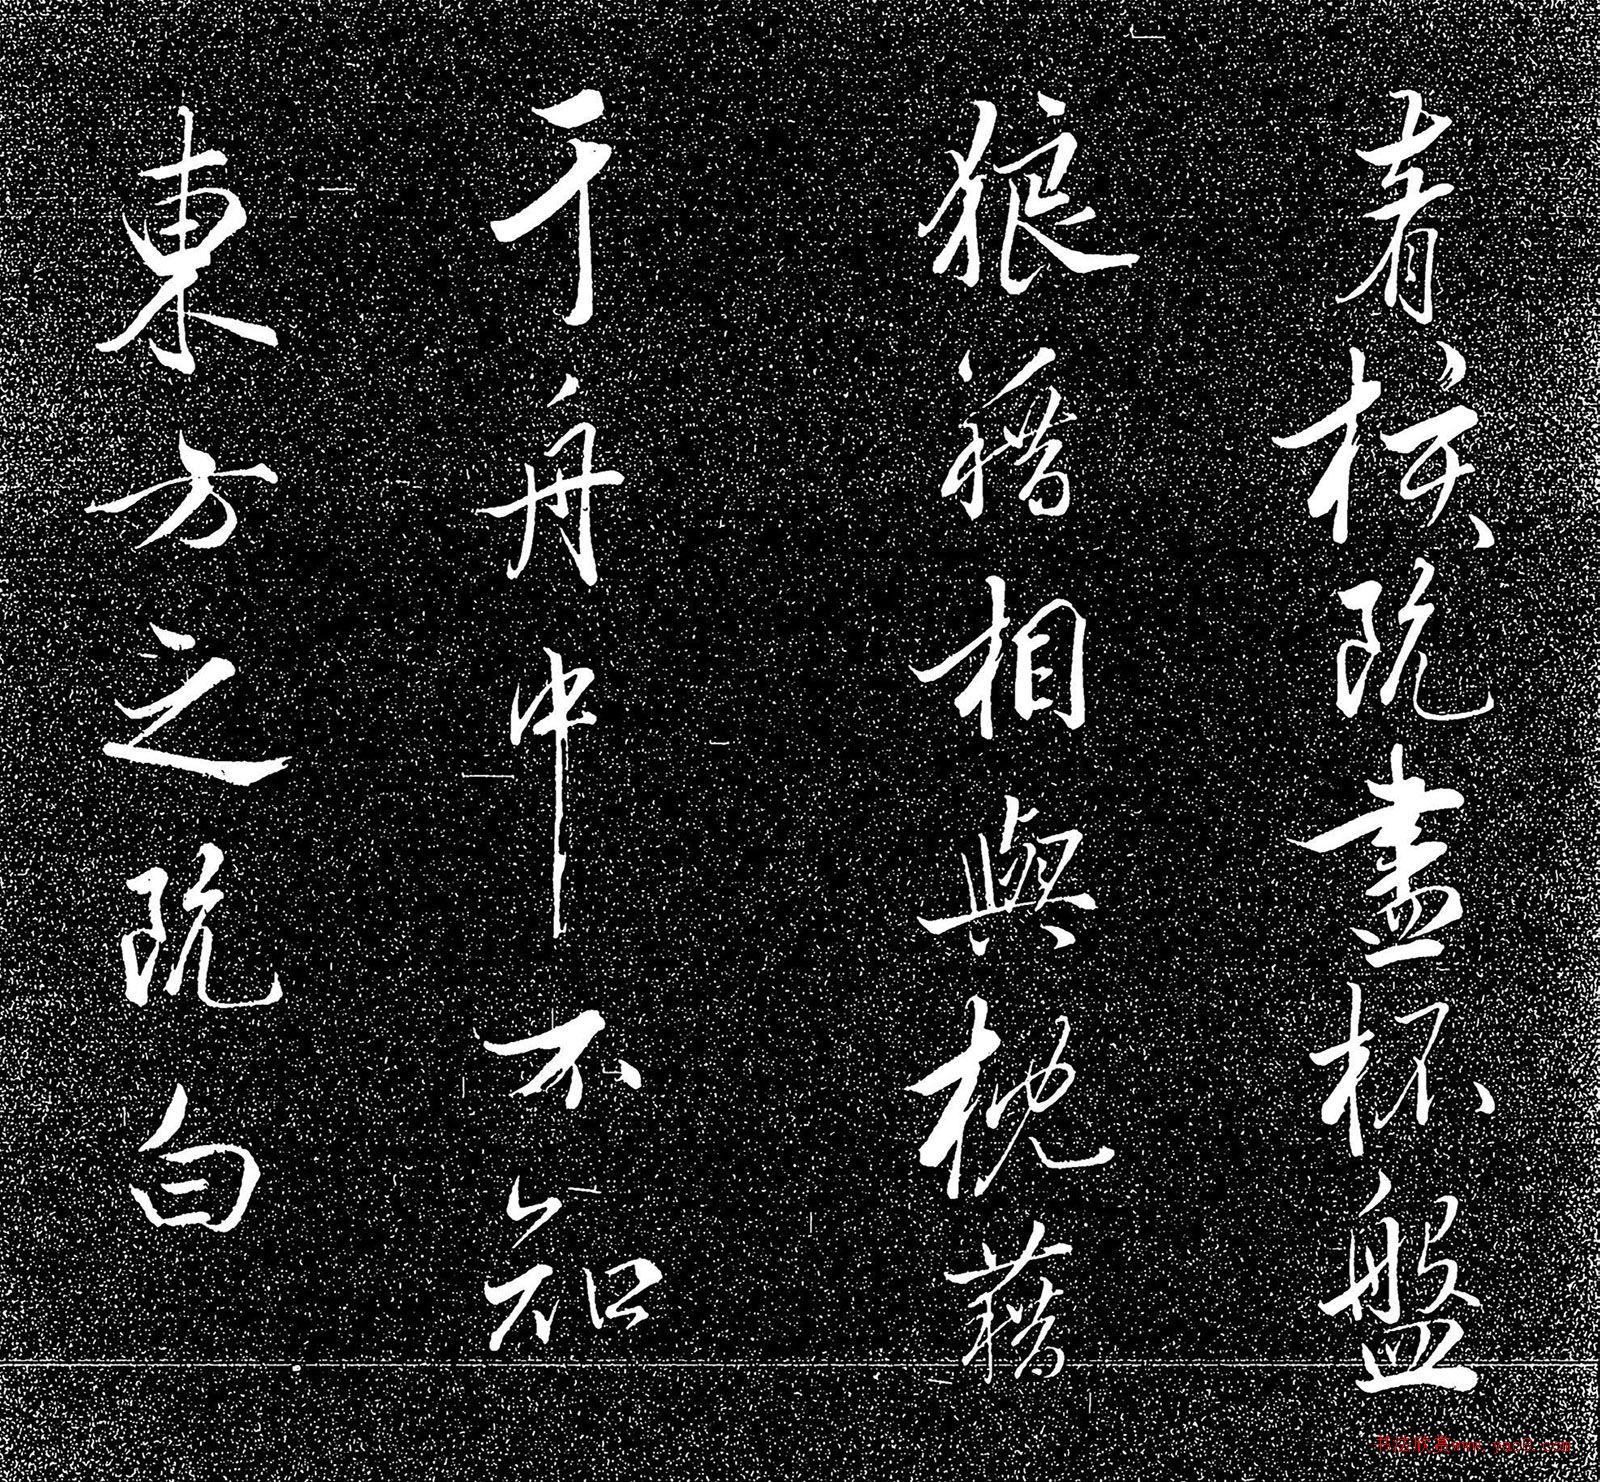 肴核既盡杯盤
狼籍相與枕藉
于舟中不知
東方之既白
书法欣赏www.yac8.com